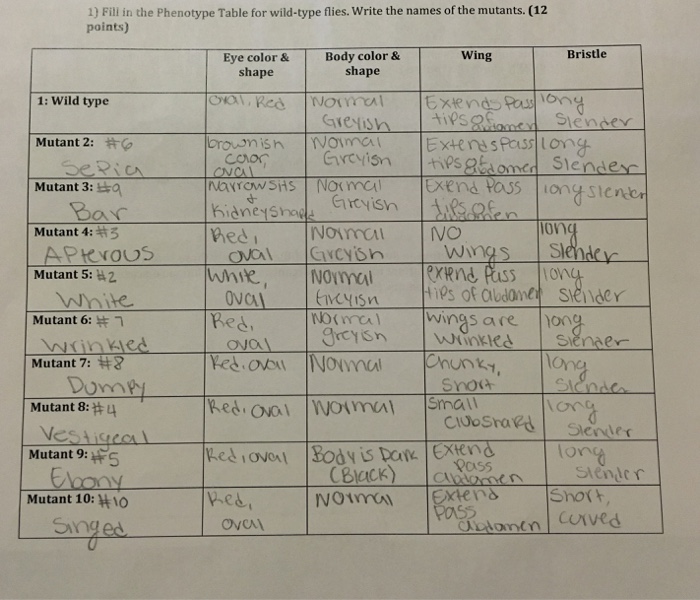 1) Fill in the Phenotype Table for wild-type flies. Write the names of the mutants. (12
points)
Eye color & shape
Body color & shape
Wing
Bristle
1: Wild type
oval, Red
Normal Greyish
Extends Pass tips of abdomen
long Slender
Mutant 2: #6 Sepia
brownish color oval
Normal Greyish
Extends Pass tips of abdomen
long Slender
Mutant 3: #9 Bar
Narrow slits & Kidney shape
Normal Greyish
Extend Pass tips of abdomen
long slender
Mutant 4: #3 APterous
Red, oval
Normal Greyish
NO wings
long Slender
Mutant 5: #2 White
White, oval
Normal Greyish
extend Pass tips of abdomen
long slender
Mutant 6: #7 Wrinkled
Red, oval
Normal greyish
wings are wrinkled
long slender
Mutant 7: #8 Dumpy
Red, oval
Normal
Chunky, Short
long slender
Mutant 8: #4 Vestigeal
Red, oval
Normal
Small Club shaped
long slender
Mutant 9: #5 Ebony
Red, oval
Body is Dark (Black)
Extend Pass abdomen
long slender
Mutant 10: #10 Singed
Red, oval
Normal
Extend Pass abdomen
Short, curved